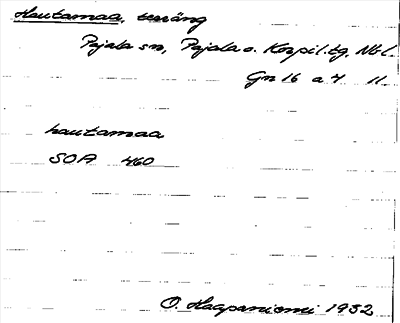 Hautamaa, terräng
Pajala sn, Pajala o. Korpil. tg. Nbl.
Gn 16 a 4 11
hautamaa
SOA 460
O. Haapaniemi 1932